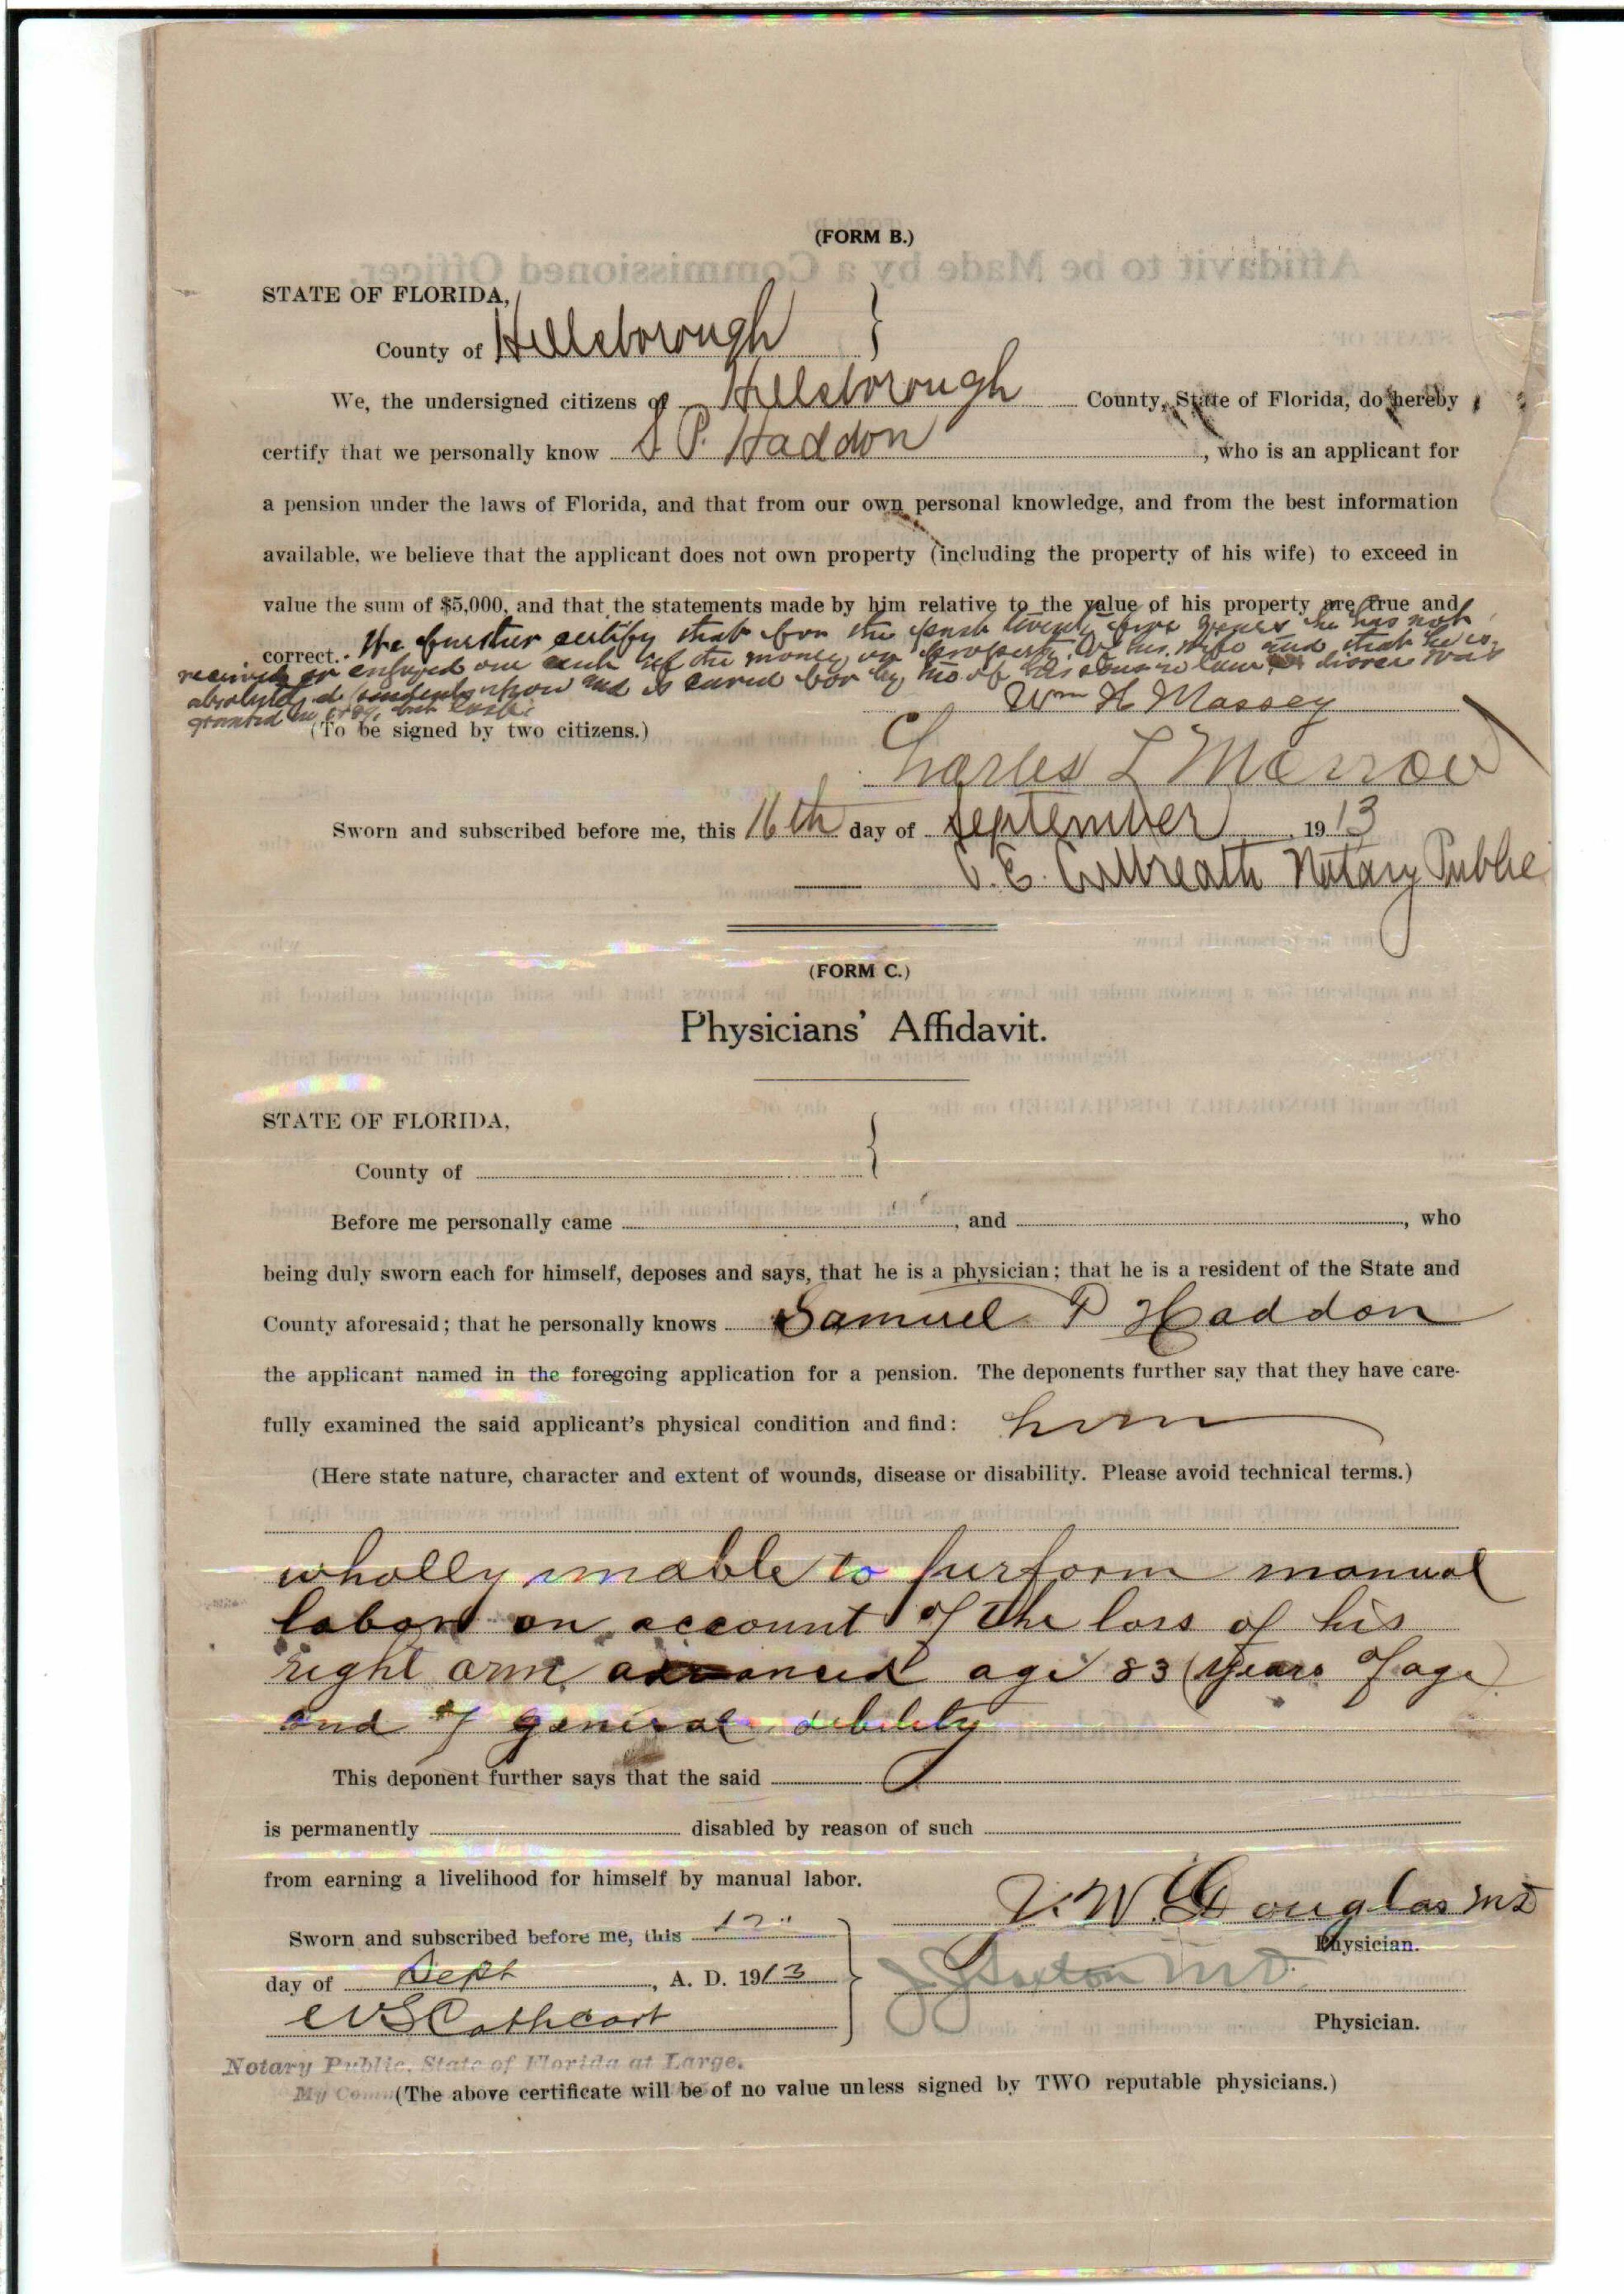 (FORM B.)
STATE OF FLORIDA,
County of Hillsborough
We, the undersigned citizens of Hillsborough County, State of Florida, do hereby
certify that we personally know S P. Haddon, who is an applicant for
a pension under the laws of Florida, and that from our own personal knowledge, and from the best information
available, we believe that the applicant does not own property (including the property of his wife) to exceed in
value the sum of $5,000, and that the statements made by him relative to the value of his property are true and
correct. We further certify that for the past twenty five years he has not
received or enjoyed one cent of the money or property of his wife and that he is
absolutely dependent upon and is cared for by two of his sons in law divorce was
granted in 1889,
(To be signed by two citizens.)
Wm H Massey
Charles L Morrow
Sworn and subscribed before me, this 16th day of September 1913
Notary Public
(FORM C.)
Physicians' Affidavit.
STATE OF FLORIDA,
County of
Before me personally came , and , who
being duly sworn each for himself, deposes and says, that he is a physician; that he is a resident of the State and
County aforesaid; that he personally knows Samuel P Haddon
the applicant named in the foregoing application for a pension. The deponents further say that they have care-
fully examined the said applicant's physical condition and find: him
(Here state nature, character and extent of wounds, disease or disability. Please avoid technical terms.)
wholly unable to purform manual
labor on account of the loss of his
right arm advanced age 83 (years of age)
and of general debility
This deponent further says that the said
is permanently disabled by reason of such
from earning a livelihood for himself by manual labor.
Sworn and subscribed before me, this 12"
day of Sept, A. D. 1913
Cathcart
Notary Public, State of Florida at Large.
My
Douglas MD
Physician.
Saxton M.D.
Physician.
(The above certificate will be of no value unless signed by TWO reputable physicians.)